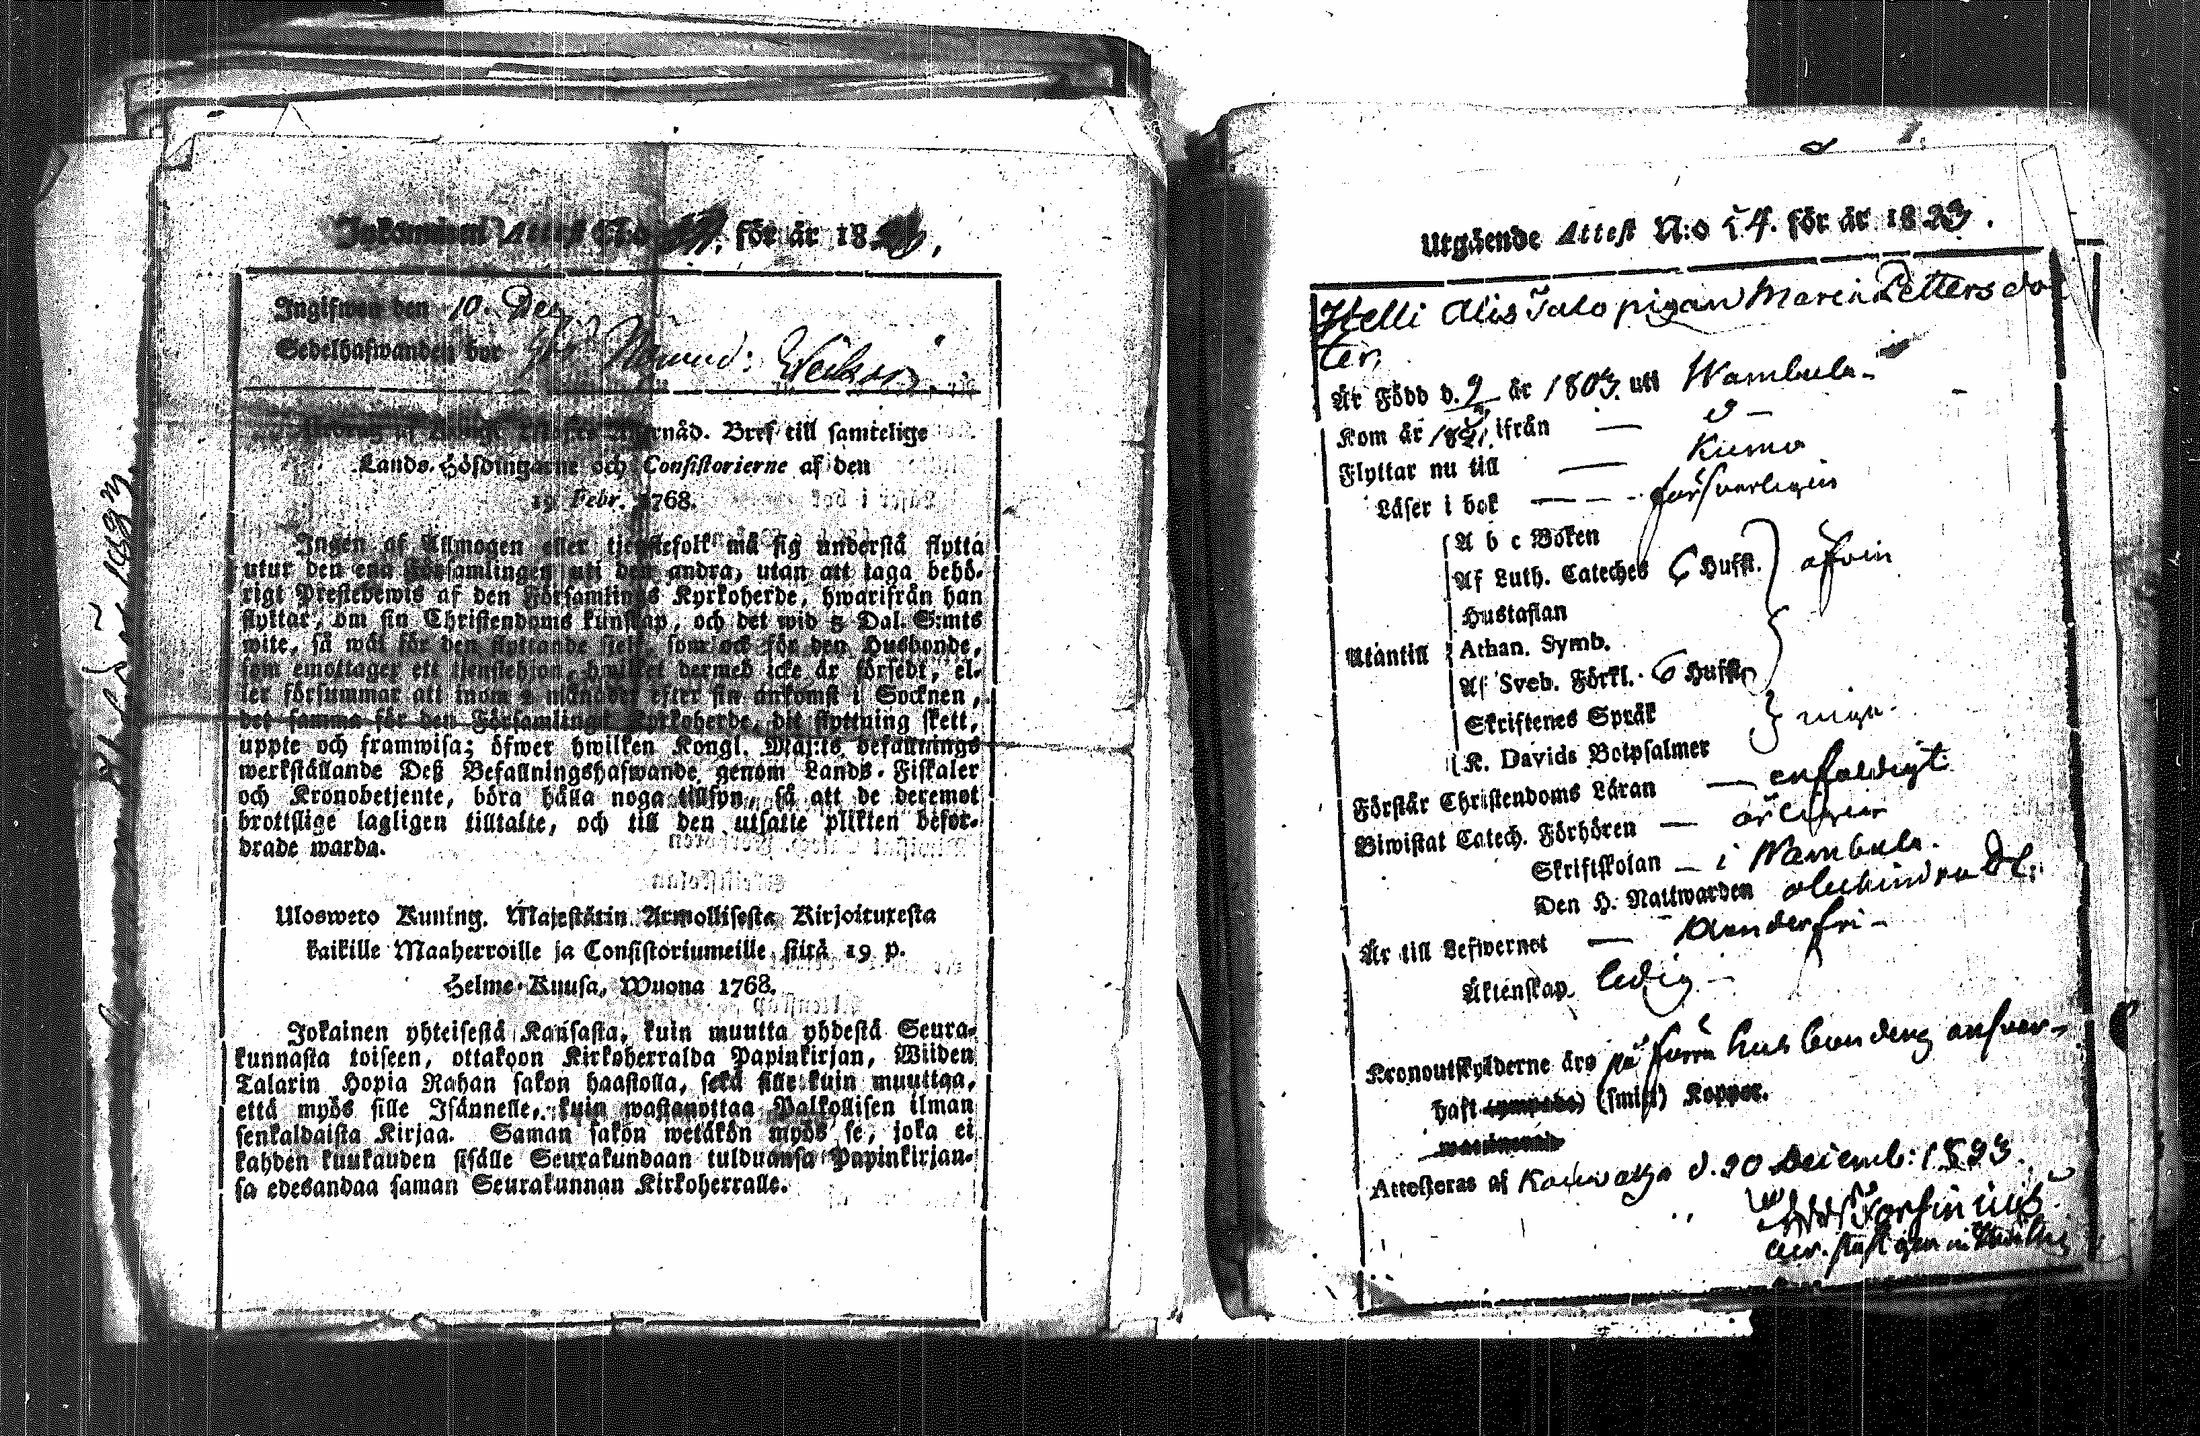 Inkommen Attest N:o för år 18
Ingifwen den 10. Dec.
Sedelhafwanden bor
Bref till samtelige
Lands-Höfdingarne och Consistorierne af den
19 Febr. 1768.
Ingen af Allmogen eller tjenstefolk må sig understå flytta
utur den ena Församlingen uti den andra, utan att taga behö-
rigt Prestebewis af den Församlings Kyrkoherde, hwarifrån han
flyttar, om sin Christendoms kunskap, och det wid 5 Dal. S:mts
wite, så wäl för den flyttande sielf, som ock för den Husbonde,
som emottager ett tjenstehjon, hwilket dermed icke är försedt, el-
ler försummar att inom 2 månader efter sin ankomst i Socknen,
det samma för den Församlings Kyrkoherde, dit flyttning skett,
uppte och framwisa; öfwer hwilken Kongl. Maj:ts befallnings
werkställande Deß Befallningshafwande genom Lands-Fiskaler
och Kronobetjente, böra hålla noga tillsyn, så att de deremot
brottslige lagligen tilltalte, och till den utsatte plikten befor-
drade warda.
Uloswето Kuning. Majestätin Armollisesta Kirjoituxesta
kaikille Maaherroille ja Consistoriumeille, siitä 19 p.
Helme-Kuusa, Wuona 1768.
Jokainen yhteisestä Kansasta, kuin muutta yhdestä Seura-
kunnasta toiseen, ottakoon Kirkoherralda Papinkirjan, Wiiden
Talarin Hopia Rahan sakon haastolla, sekä sille kuin muuttaa,
että myös sille Isännelle, kuin wastanottaa Palkollisen ilman
senkaldaista Kirjaa. Saman sakon wetäkön myös se, joka ei
kahden kuukauden sisälle Seurakundaan tulduansa Papinkirjan-
sa edesandaa saman Seurakunnan Kirkoherralle.
Utgående Attest N:o 54. för år 1823.
Helli Alis Talo pigan Maria Petters do
ter,
Är Född d. 9 år 1803. uti Wambula
Kom år 1821. ifrån — d —
Flyttar nu till — Kumo
Läser i bok — — - försvarligen
A b c Boken
Af Luth. Cateches 6 Hufst. } åfvin
Hustaflan
Utantill Athan. Symb.
Af Sveb. Förkl. 6 Hufst.
Skriftenes Språk } niga
K. Davids Botpsalmer
Förstår Christendoms Läran — enfaldigt
Biwistat Catech. Förhören — årligen
Skriftskolan — i Wambula.
Den H. Nattwarden
Är till Lefwernet — klanderfri —
Äktenskap. ledig —
Kronoutskylderne äro på förra husbondens ansvar-
haft (smitt) Koppor.
Attesteras af d. 20 Decemb: 1823.